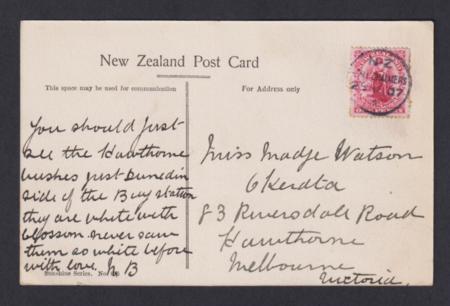 New Zealand Post Card
This space may be used for communication
For Address only
N.Z.
07
You should just
see the Hawthorne
bushes just Dunedin
side of the Bury station
they are white with
blossom never saw
them so white before
with love. B
Miss Madge Watson
83 Riversdale Road
Hawthorne
Melbourne
Victoria.
Sunshine Series. No.